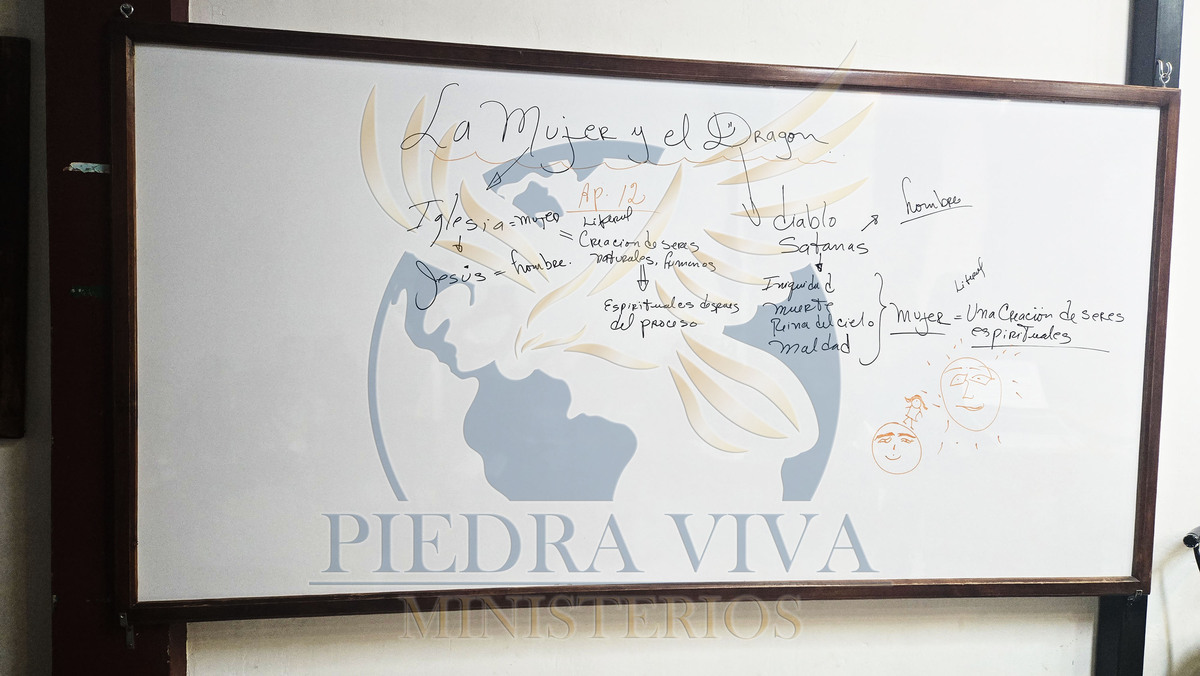 La Mujer y el Dragon
Ap. 12
Iglesia = mujer
Jesús = hombre.
Literal
= Creacion de seres
naturales, humanos
Espirituales despues
del proceso
diablo
Satanas
hombre
Iniquidad
muerte
Reina del cielo
maldad
Mujer = Una Creación de seres
Literal
espirituales
PIEDRA VIVA
MINISTERIOS